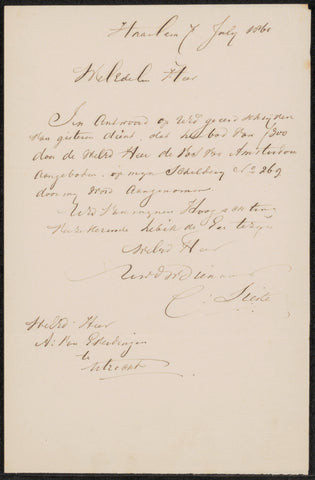 Haarlem 7 July 1861
WelEdele Heer
In Antwoord op UEd geëerd schrijven
van gisteren dient, dat het bod van ƒ300
door de WelEd Heer de Vos van Amsterdam
aangeboden op mijn Schilderij No 269
door mij word Aangenomen
UEd van mijnen Hoogachting
verzekerende heb ik de Eer te zijn
WelEd Heer
UEdDWDienaar
C. Lieste
WelEd Heer
A. van
te
Utrecht